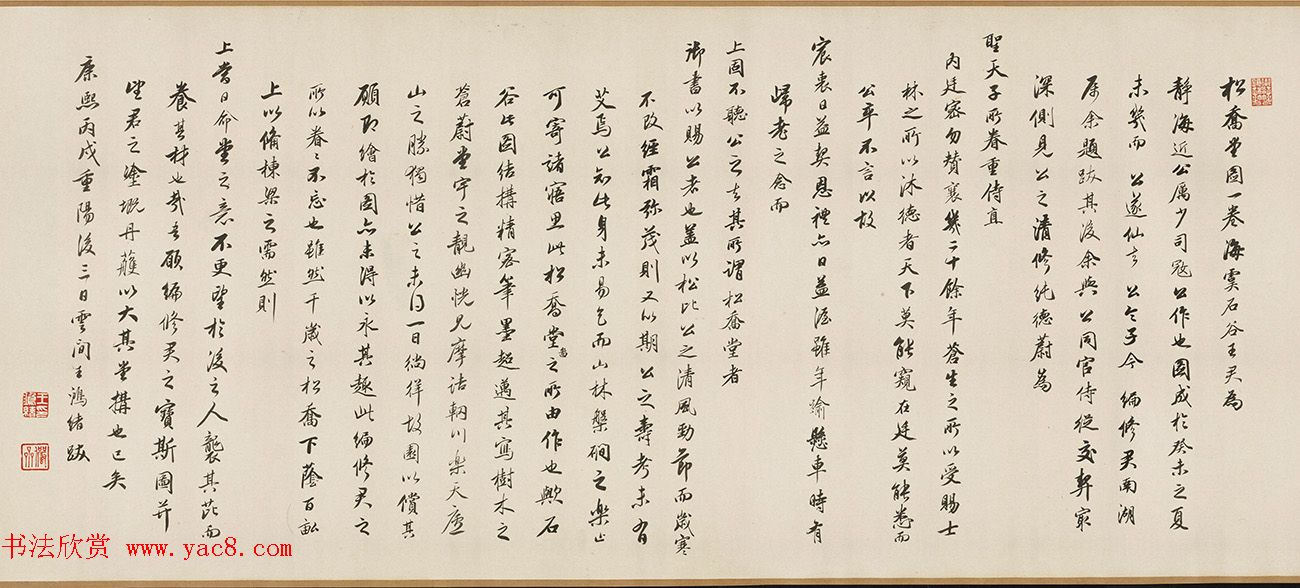 松喬堂圖一卷海虞石谷王君為
靜海近公勵少司寇公作也圖成於癸未之夏
未幾而公遂仙去公令子今編修君南湖
屬余題跋其後余與公同官侍從交契最
深側見公之清修純德蔚為
聖天子所眷重侍直
內廷密勿贊襄幾二十餘年蒼生之所以受賜士
林之所以沐德者天下莫能窺在廷莫能悉而
公卒不言以故
宸衷日益契恩禮亦日益渥雖年踰懸車時有
歸老之念而
上固不聽公之去其所謂松喬堂者
御書以賜公者也蓋以松比公之清風勁節而歲寒
不改經霜弥茂則又以期公之壽考未有
艾焉公知此身未易乞而山林槃磵之樂止
可寄諸寤思此松喬堂圖之所由作也歟石
谷此圖結構精密筆墨超邁其寫樹木之
蒼蔚堂宇之靚幽恍見摩詰輞川樂天廬
山之勝獨惜公之未得一日徜徉故園以償其
願即繪於圖亦未得以永其趣此編修君之
所以眷眷不忘也雖然千歲之松喬下蔭百畝
上以備棟梁之需然則
上當日命堂之意不更望於後之人襲其芘而
養其材也哉吾願編修君之寶斯圖并
望君之塗塈丹雘以大其堂構也已矣
康熙丙戌重陽後三日雲間王鴻緒跋
书法欣赏 www.yac8.com